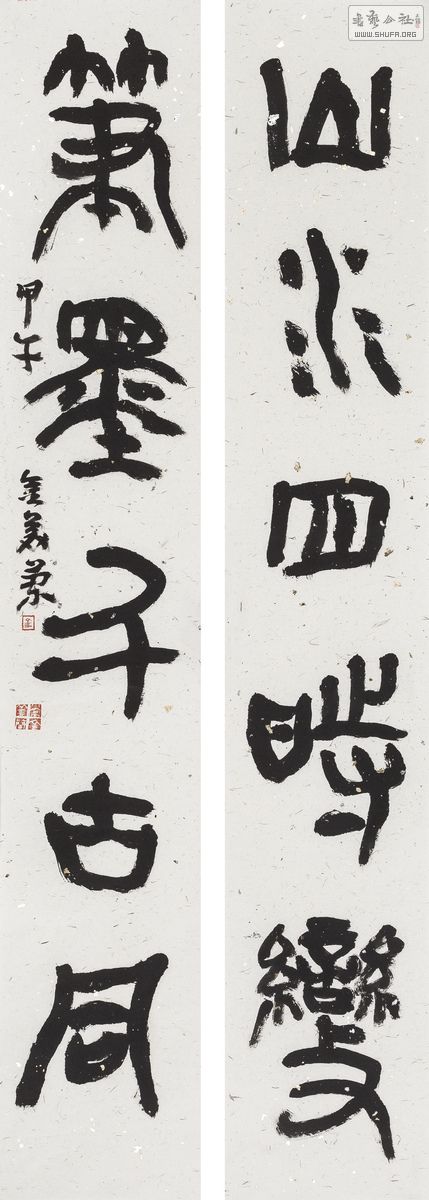 山水四時變
筆墨千古同
甲午
金美蘭
書藝公社
WWW.SHUFA.ORG